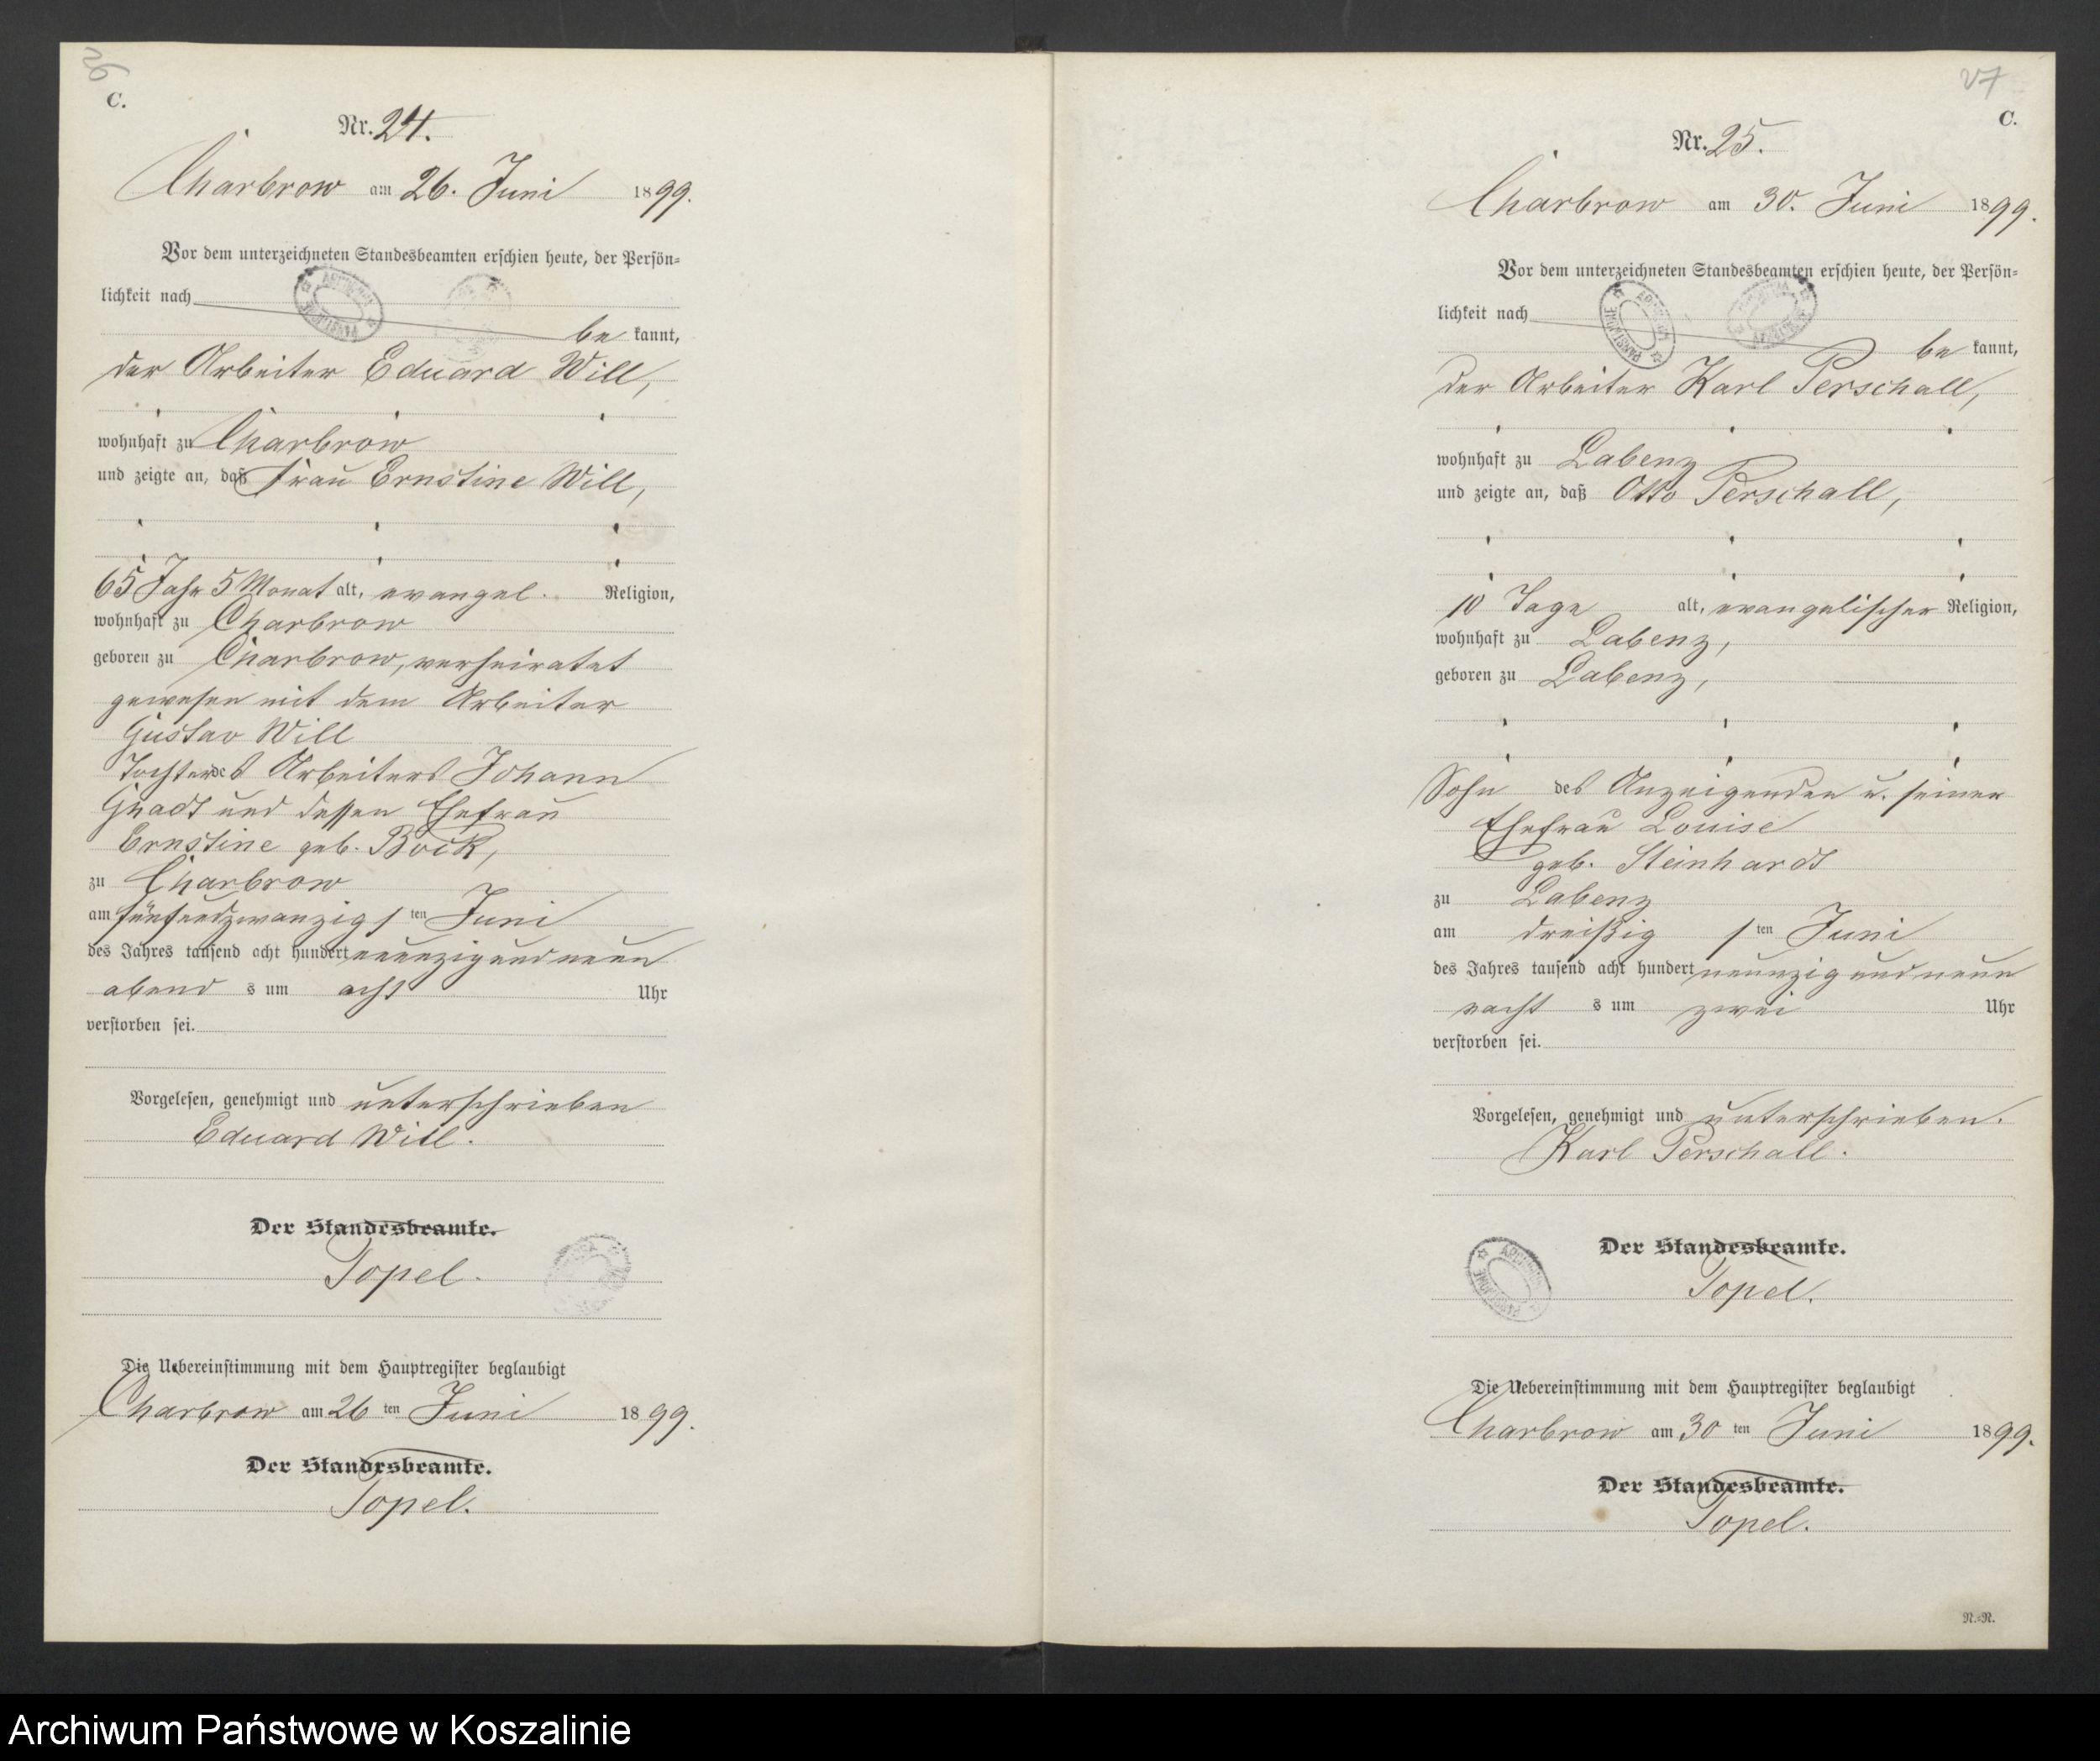 26
C.
Nr. 24.
Charbrow am 26. Juni 1899.
Vor dem unterzeichneten Standesbeamten erschien heute, der Persön-
lichkeit nach
be kannt,
der Arbeiter Eduard Will,
wohnhaft zu Charbrow
und zeigte an, daß Frau Ernstine Will,
65 Jahr 5 Monat alt, evangel. Religion,
wohnhaft zu Charbrow
geboren zu Charbrow, verheiratet
gewesen mit dem Arbeiter
Gustav Will
Tochter des Arbeiters Johann
Gnadt und dessen Ehefrau
Ernstine geb. Bock,
zu Charbrow
am fünfundzwanzigsten Juni
des Jahres tausend acht hundert neunzig und neun
abend s um acht Uhr
verstorben sei.
Vorgelesen, genehmigt und unterschrieben
Eduard Will.
Der Standesbeamte.
Topel.
Die Uebereinstimmung mit dem Hauptregister beglaubigt
Charbrow am 26 ten Juni 1899.
Der Standesbeamte.
Topel.
27
C.
Nr. 25.
Charbrow am 30. Juni 1899.
Vor dem unterzeichneten Standesbeamten erschien heute, der Persön-
lichkeit nach
be kannt,
der Arbeiter Karl Perschall,
wohnhaft zu Labenz
und zeigte an, daß Otto Perschall,
10 Tage alt, evangelischer Religion,
wohnhaft zu Labenz,
geboren zu Labenz,
Sohn des Anzeigenden u. seiner
Ehefrau Louise
geb. Steinhardt
zu Labenz
am dreißig sten Juni
des Jahres tausend acht hundert neunzig und neun
nacht s um zwei Uhr
verstorben sei.
Vorgelesen, genehmigt und unterschrieben.
Karl Perschall.
Der Standesbeamte.
Topel.
Die Uebereinstimmung mit dem Hauptregister beglaubigt
Charbrow am 30 ten Juni 1899.
Der Standesbeamte.
Topel.
N.=N.
Archiwum Państwowe w Koszalinie